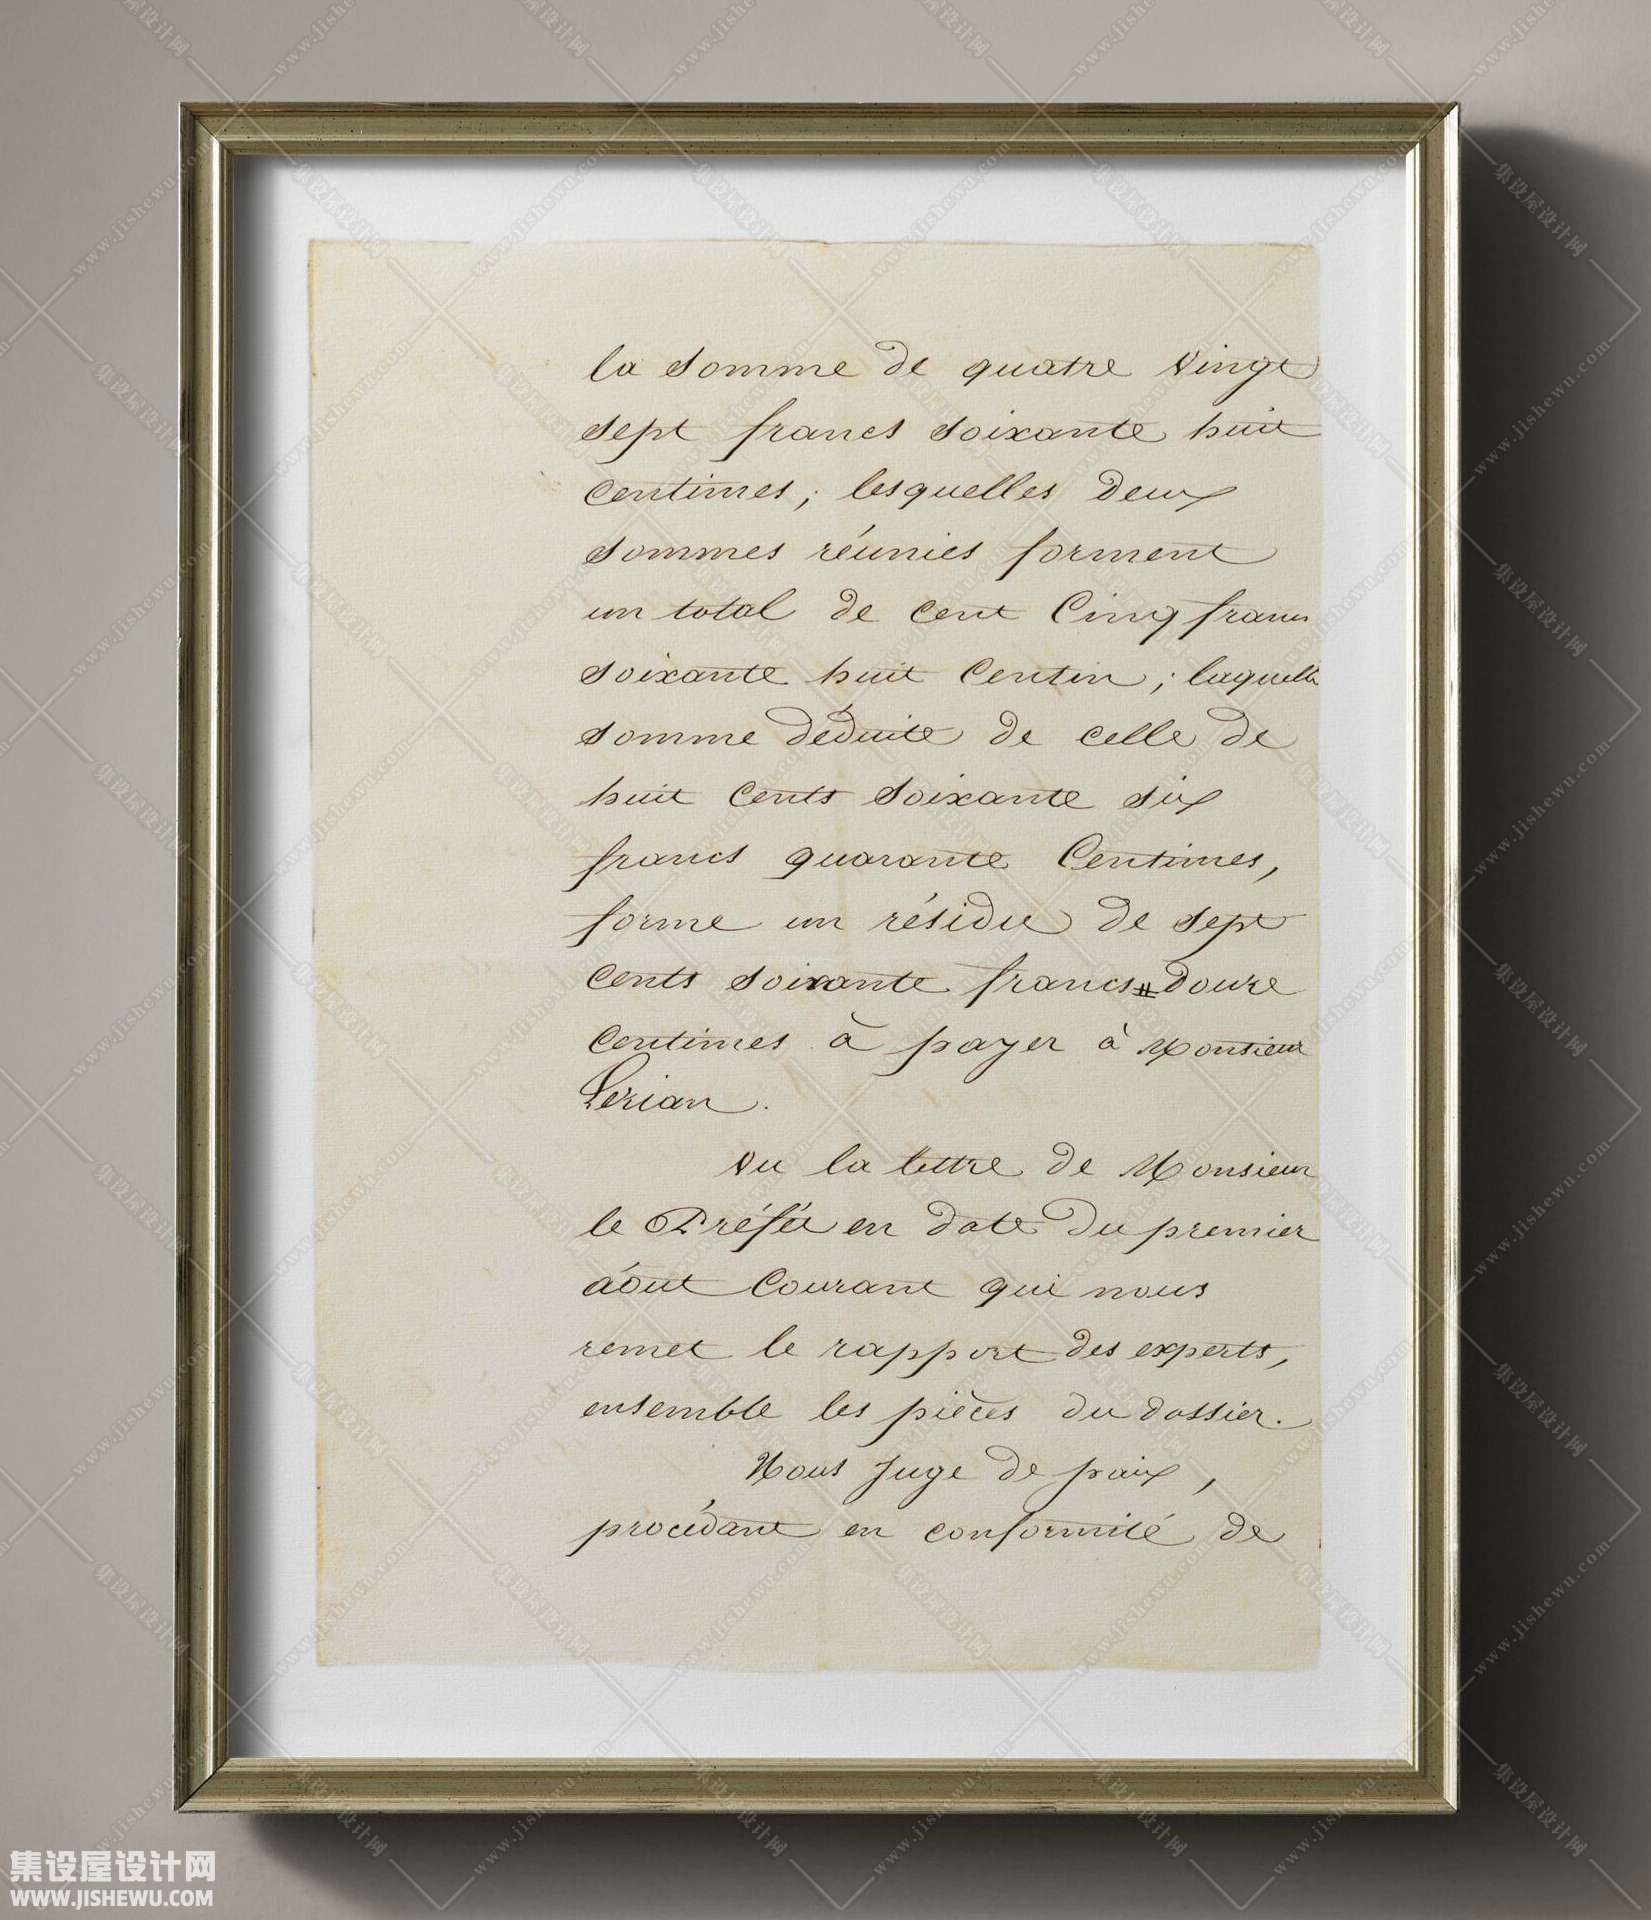 la somme de quatre vingt
sept francs soixante huit
centimes; lesquelles deux
sommes réunies forment
un total de cent Cinq francs
soixante huit Centin; laquelle
somme déduite de celle de
huit cents soixante six
francs quarante Centimes,
forme un résidu de sept
cents soixante francs douze
centimes à payer à Monsieur
Lerian.
Vu la lettre de Monsieur
le Préfet en date du premier
août Courant qui nous
remet le rapport des experts,
ensemble les pièces du dossier.
Nous Juge de paix,
procédant en conformité de
集设屋设计网
WWW.JISHEWU.COM